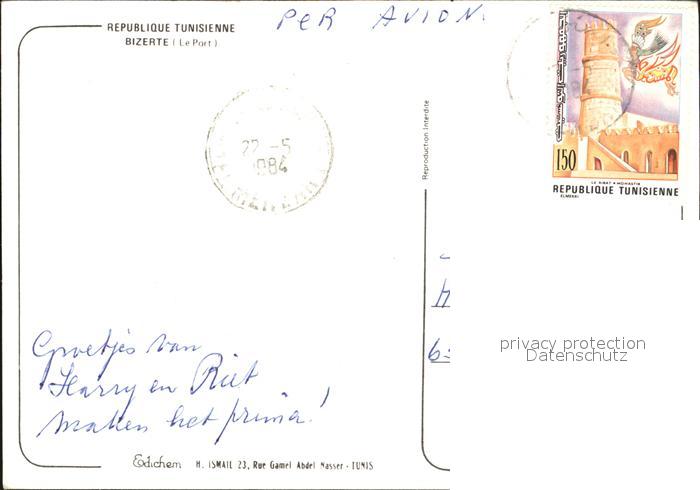 REPUBLIQUE TUNISIENNE
BIZERTE (Le Port)
PER AVION.
22 -5
1984
Reproduction Interdite
150
LE RIBAT • MONASTIR
REPUBLIQUE TUNISIENNE
ELMEKKI
privacy protection
Datenschutz
Groetjes van
Harry en Riet
maken het prima!
Edichem H. ISMAIL 23, Rue Gamel Abdel Nasser - TUNIS